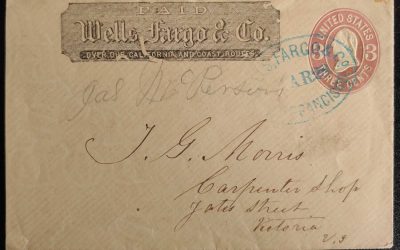 PAID
Wells Fargo & Co.
OVER OUR CALIFORNIA AND COAST ROUTES
UNITED STATES
3 3
THREE CENTS
FARGO
FRANCIS
T. G. Morris
Carpenter Shop
Yates Street
Victoria
V.I